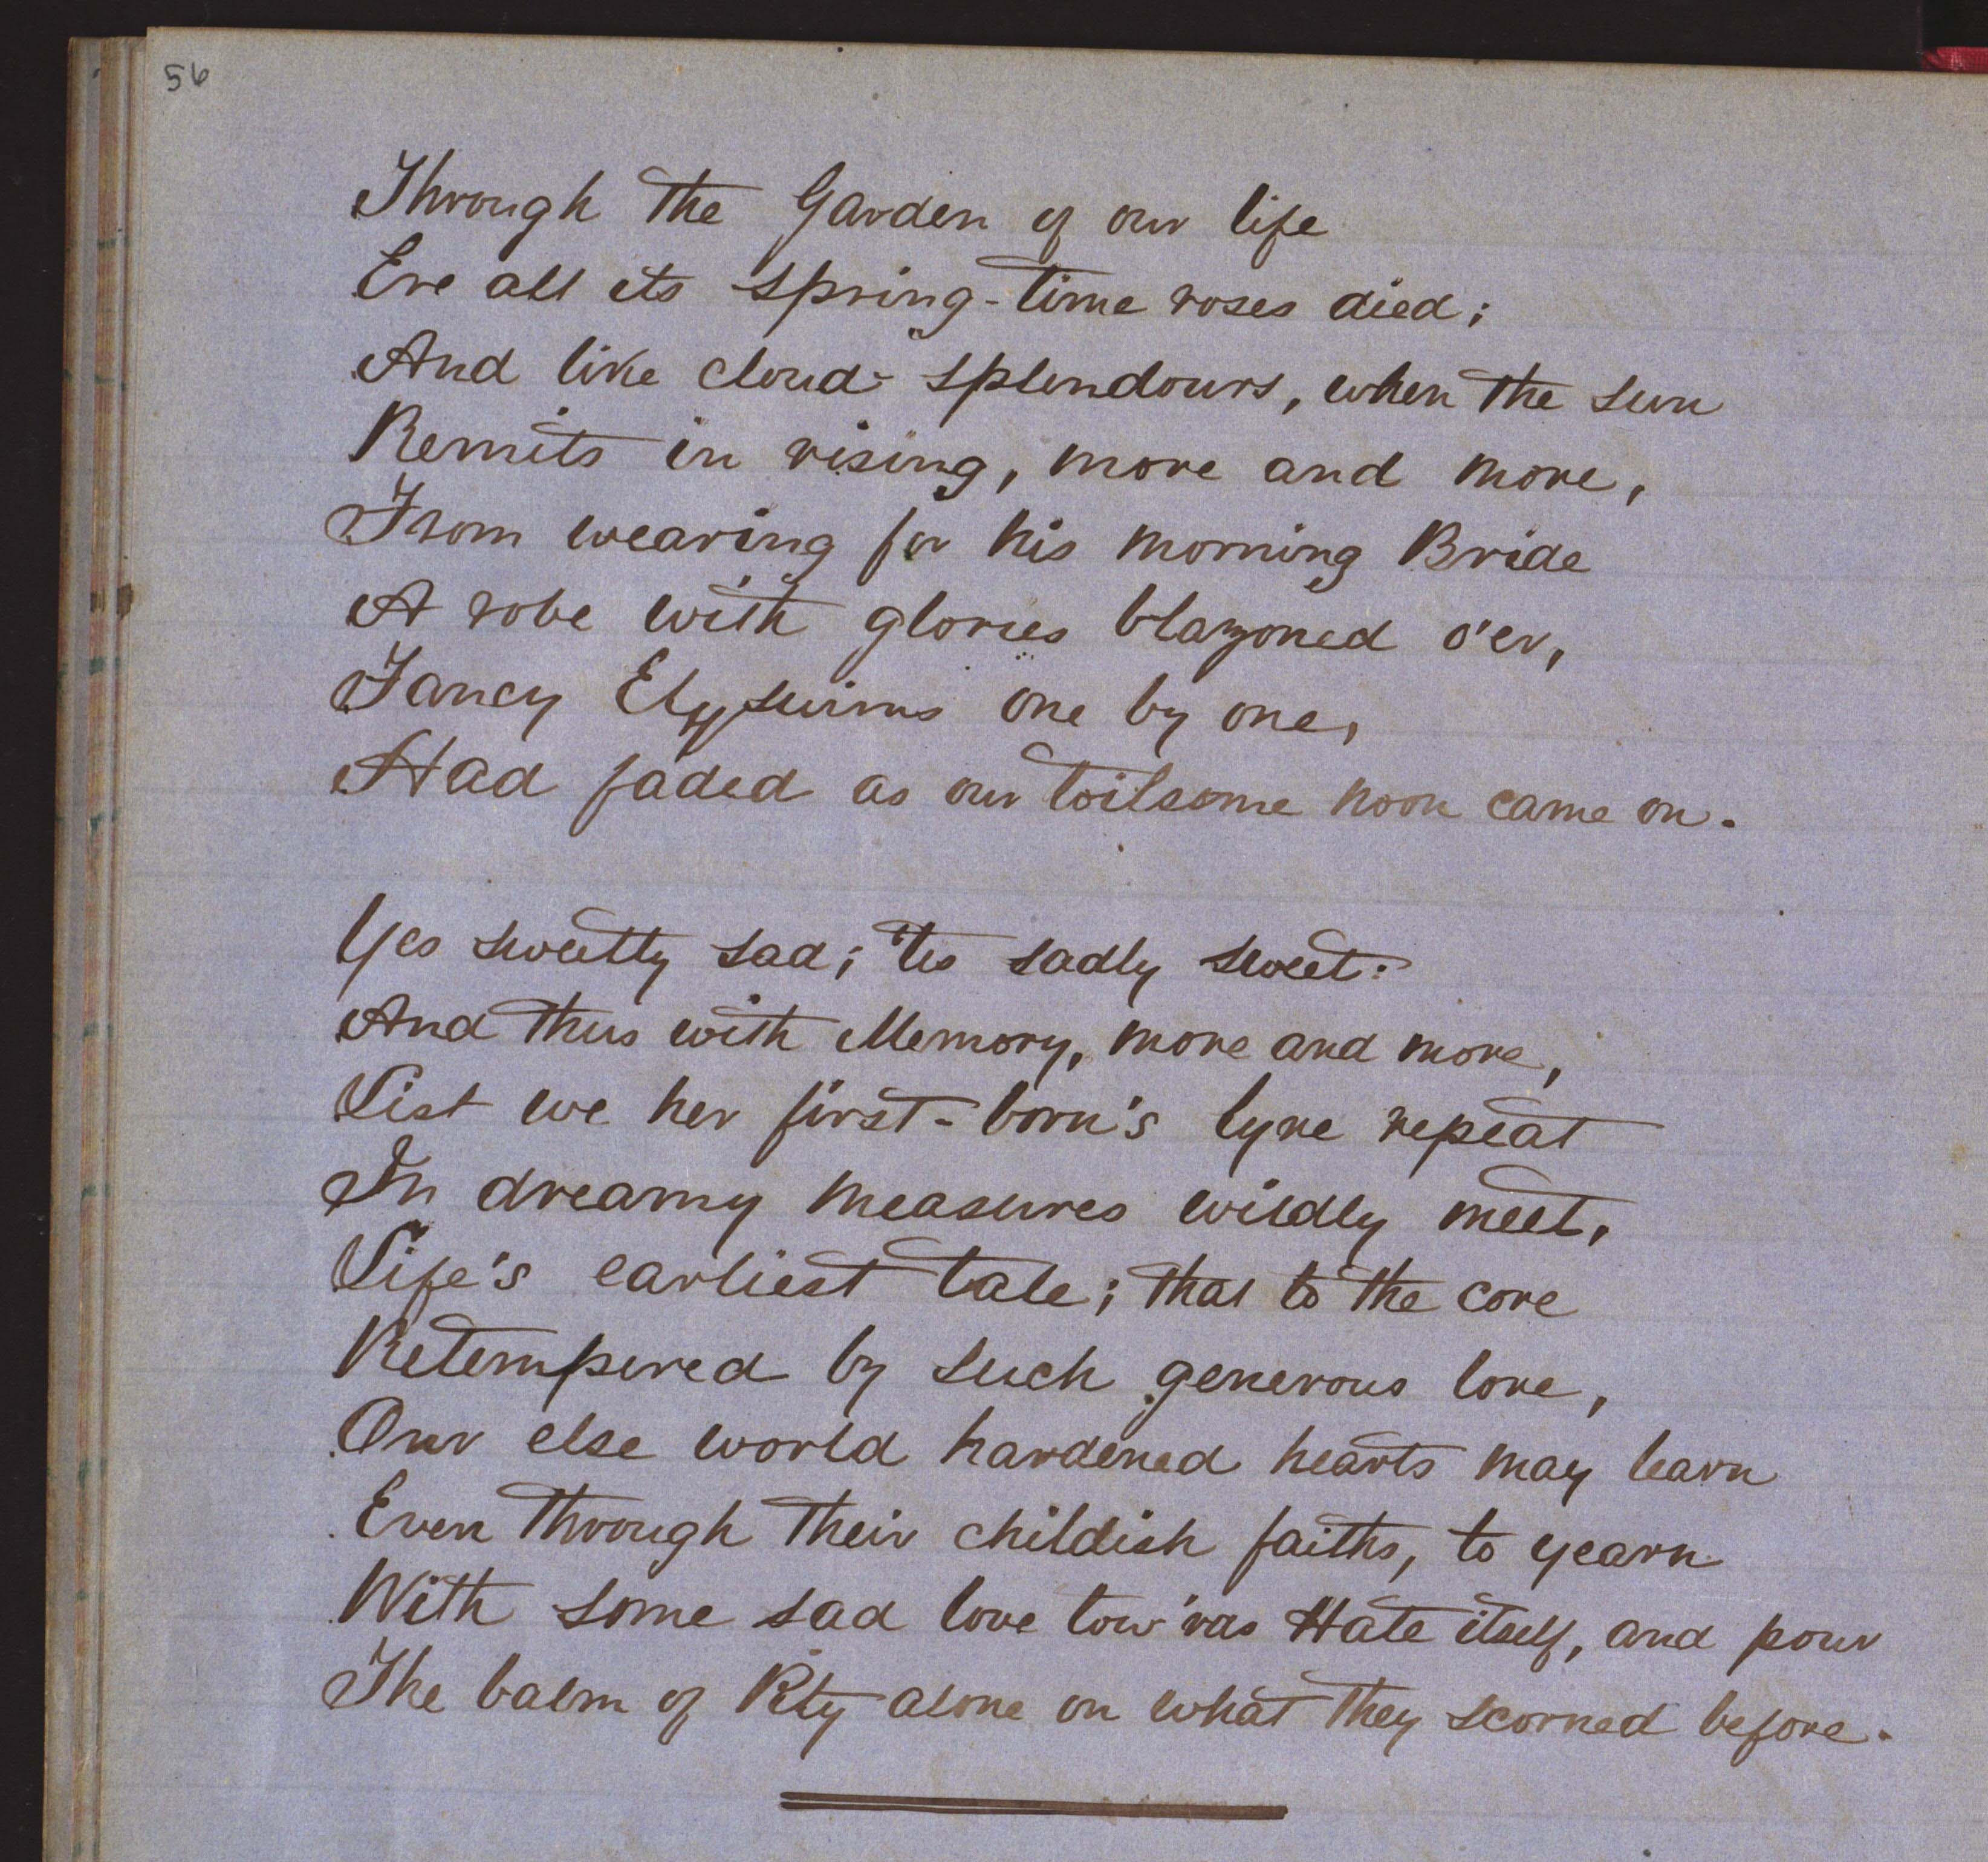 56
Through the Garden of our life
Ere all its spring-time roses died;
And like cloud-splendours, when the sun
Remits in rising, more and more,
From wearing for his morning Bride
A robe with glories blazoned o'er,
Fancy Elysiums one by one,
Had faded as our toilsome noon came on.
Yes sweetly sad; 'tis sadly sweet:
And thus with Memory, more and more,
List we her first-born's lyre repeat
In dreamy measures wildly meet,
Life's earliest tale; that to the core
Retempered by such generous lore,
Our else world hardened hearts may learn
Even through their childish faiths, to yearn
With some sad love tow'rds Hate itself, and pour
The balm of Pity alone on what they scorned before.